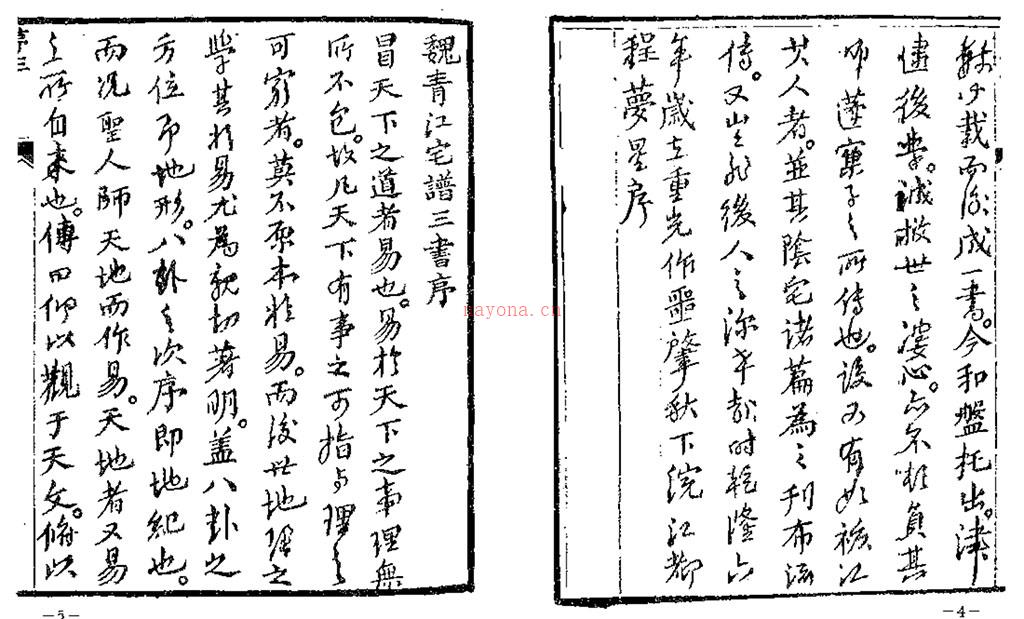 載而後成一書。今和盤托出。津
後學。誠救世之婆心。亦不敢負其
師蓮窠子之所傳也。設又有如江
其人者。並其陰宅諸篇為之刊布流
傳。又後人之深幸哉時乾隆六
年歲在重光作噩肇秋下浣江都
程夢星序
—4—
魏青江宅譜三書序
冒天下之道者易也。易於天下之事理無
所不包。故凡天下有事之可指与理之
可窮者。莫不原本於易。而後世地理之
學其於易尤為親切著明。蓋八卦之
方位即地形。八卦之次序即地紀也。
而況聖人師天地而作易。天地者又易
之所自來也。傳曰仰以觀于天文。俯以
序三
—5—
nayona.cn